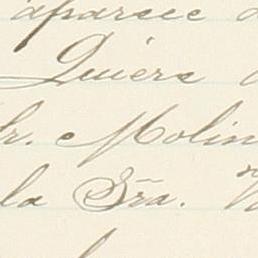 aparsee
Quiere
Sr. Molin
la Sra.